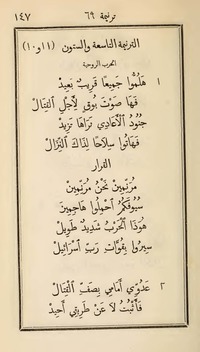 ١٤٧
ترنيمة ٦٩
الترنيمة التاسعة والستون (١١ و١٠)
الحرب الروحية
١ هَلُمُّوا جَمِيعًا قَرِيبٌ بَعِيدْ
فَهَا صَوْتُ بُوقٍ لِأَجْلِ ٱلْقِتَالْ
جُنُودُ ٱلْأَعَادِي تَرَاهَا تَزِيدْ
فَهَاتُوا سِلَاحًا لِذَاكَ ٱلنِّزَالْ
القرار
مُرَنِّمِينْ نَحْنُ مُرَنِّمِينْ
سُيُوفَكُمُ ٱحْمِلُوا هَاجِمِينْ
هُوَذَا ٱلْحَرْبُ شَدِيدٌ طَوِيلْ
سِيرُوا بِقُوَّاتِ رَبِّ إِسْرَائِيلْ
٢ عَدُوِّي أَمَامِي بِصَفِّ ٱلْقِتَالْ
فَأَثْبُتُ لَا عَنْ طَرِيقِي أَحِيدْ